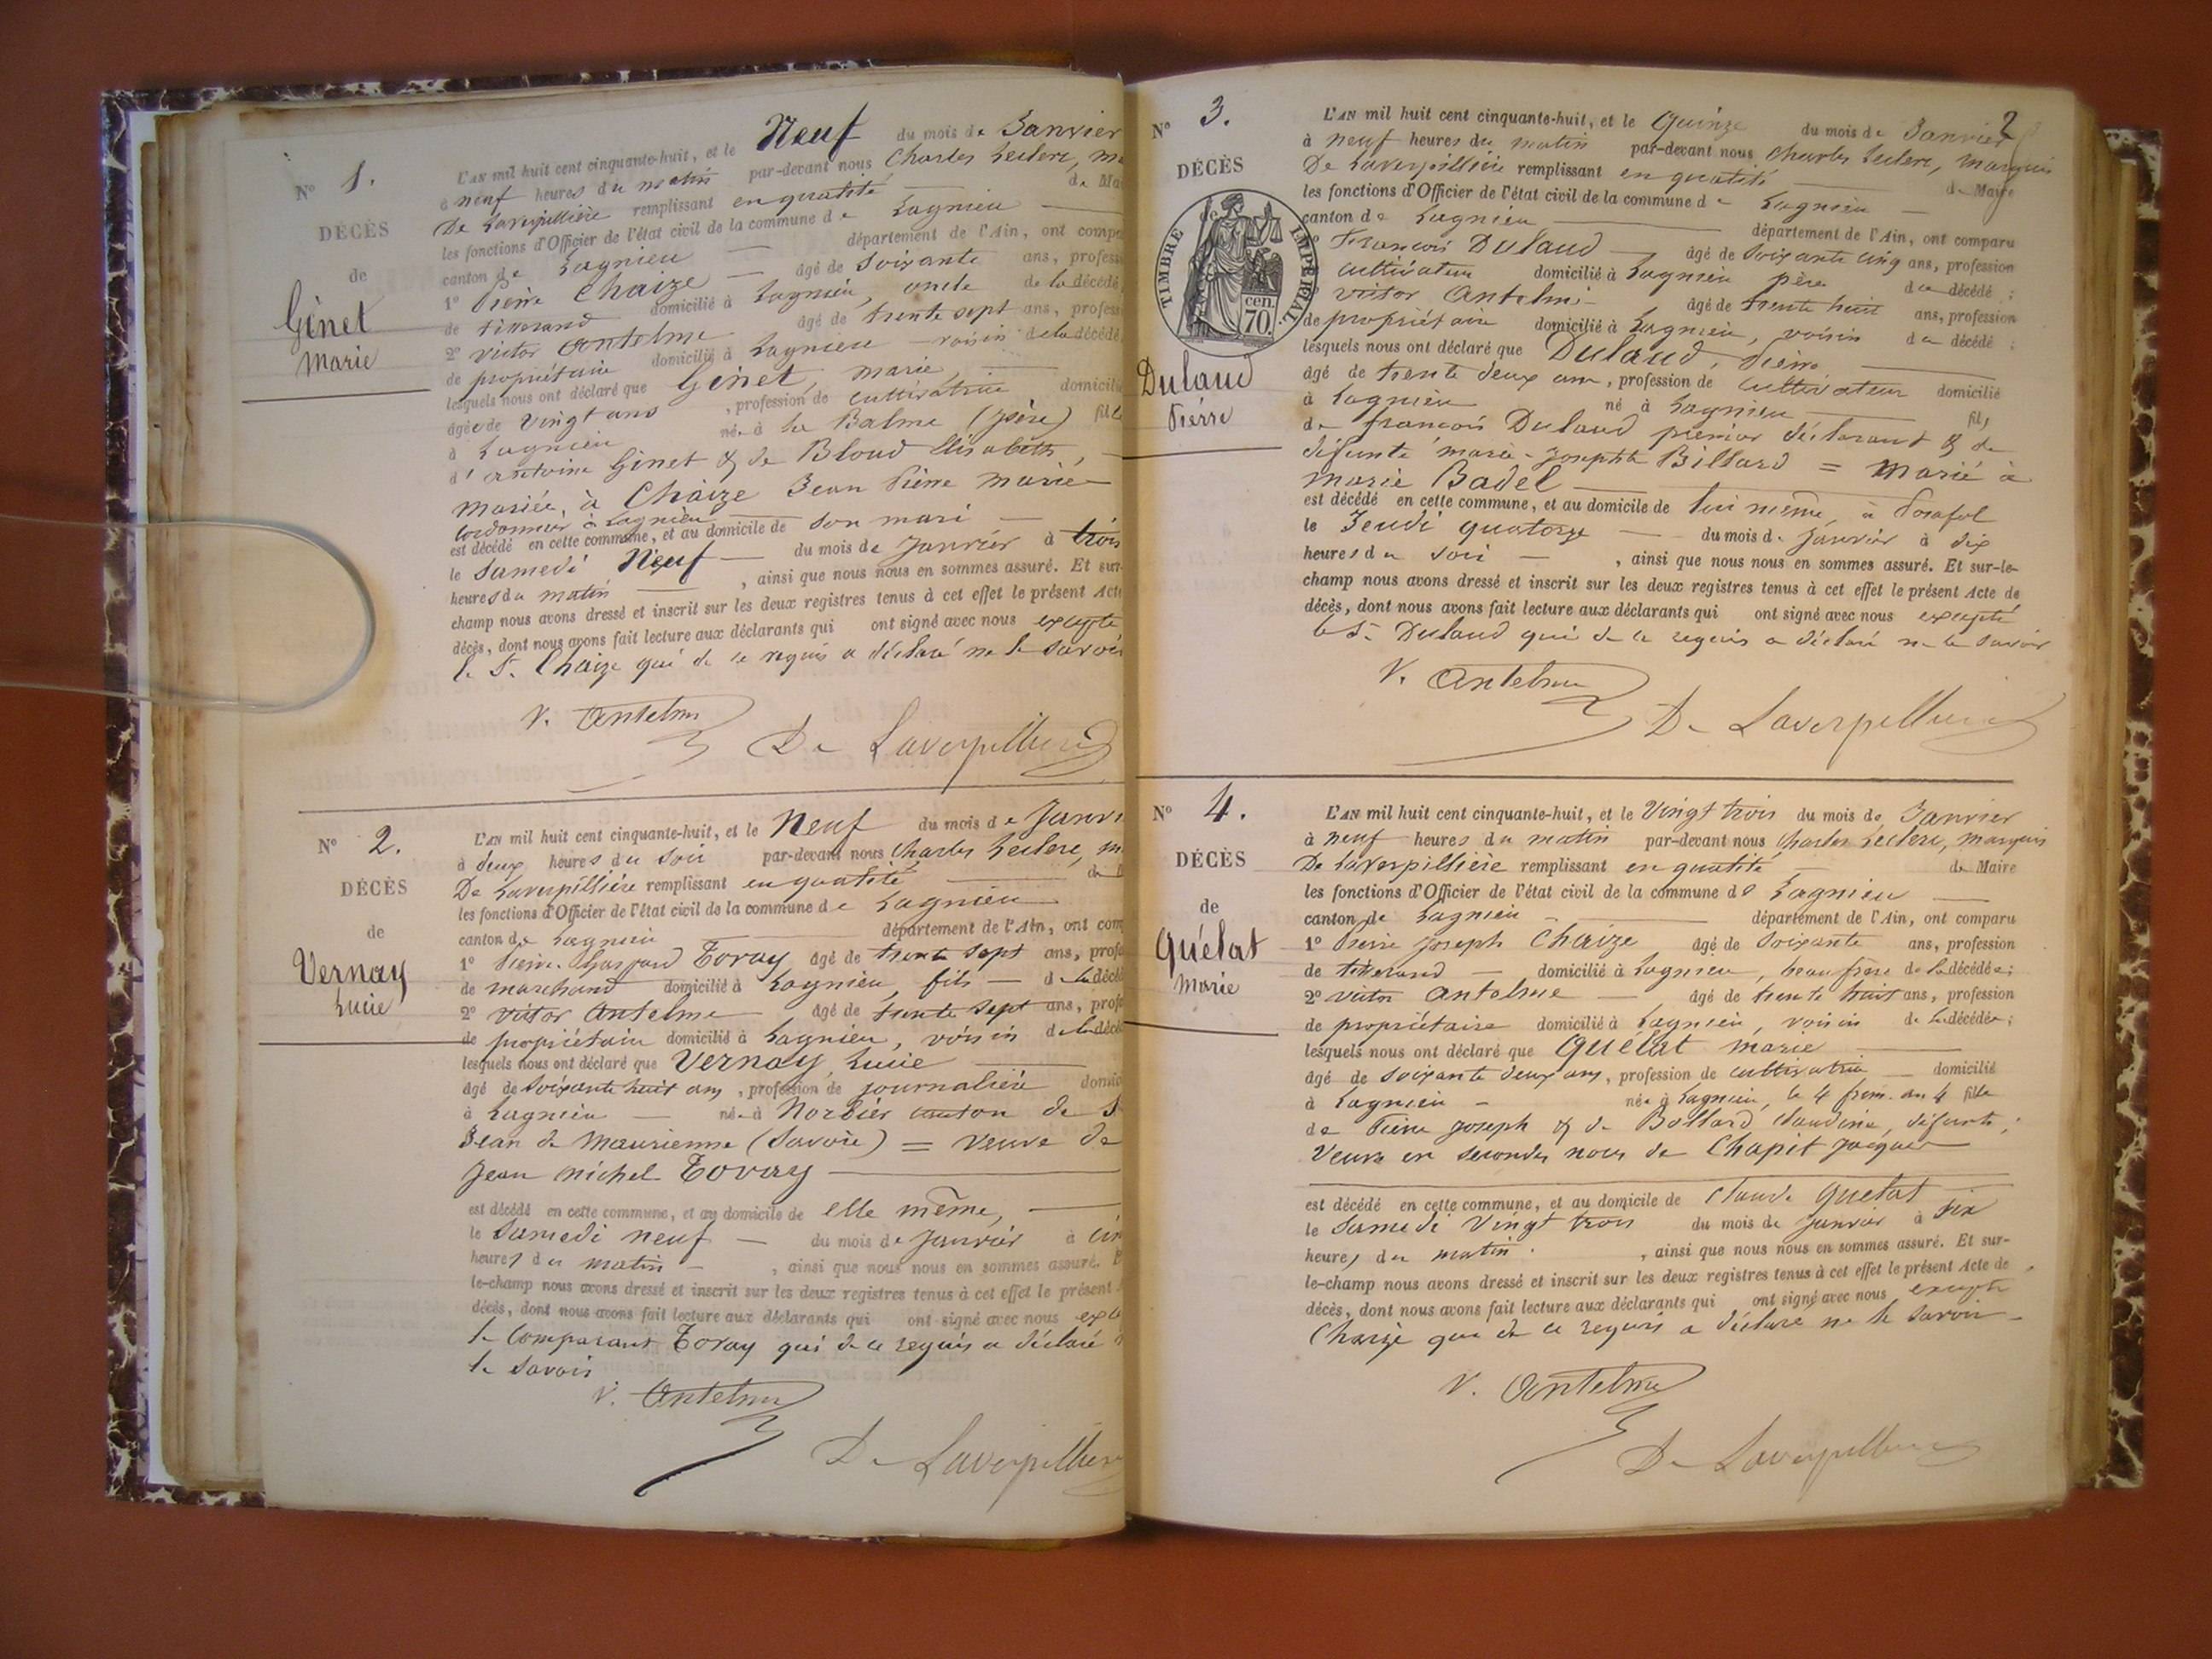 N° 1.
DÉCÈS
de
Ginet
Marie
L'AN mil huit cent cinquante-huit, et le Neuf du mois de Janvier
à neuf heures du matin par-devant nous Charles Leclerc, m
De Laverpillière remplissant en qualité de Mai
les fonctions d'Officier de l'état civil de la commune de Lagnieu
canton de Lagnieu département de l'Ain, ont compa
1° Pierre Chaize âgé de soixante ans, professi
de tisserand domicilié à Lagnieu, oncle de la décédé
2° victor Antelme âgé de trente sept ans, profess
de propriétaire domicilié à Lagnieu voisin de la décédé
lesquels nous ont déclaré que Ginet, marie,
âgée de vingt ans, profession de cultivatrice domicili
à Lagnieu née à La Balme (Isère) fille
d'antoine Ginet & de Bloud Elisabeth,
mariée, à Chaize Jean Pierre Marie
cordonnier à Lagnieu
est décédé en cette commune, et au domicile de son mari
le Samedi Neuf du mois de Janvier à trois
heures du matin, ainsi que nous nous en sommes assuré. Et sur-
champ nous avons dressé et inscrit sur les deux registres tenus à cet effet le présent Acte
décès, dont nous avons fait lecture aux déclarants qui ont signé avec nous excepté
le S. Chaize qui de ce requis a déclaré ne le savoir
V. Antelme
De Laverpillière
N° 2.
DÉCÈS
de
Vernay
Lucie
L'AN mil huit cent cinquante-huit, et le Neuf du mois de Janvi
à deux heures du soir par-devant nous Charles Leclerc, m
De Laverpillière remplissant en qualité de
les fonctions d'Officier de l'état civil de la commune de Lagnieu
canton de Lagnieu département de l'Ain, ont com
1° Pierre Gaspard Tovay âgé de trente sept ans, profe
de marchand domicilié à Lagnieu, fils de la décé
2° victor Antelme âgé de trente sept ans, profe
de propriétaire domicilié à Lagnieu, voisin de la décé
lesquels nous ont déclaré que Vernay, Lucie
âgé de soixante huit ans, profession de journalière domic
à Lagnieu née à canton de S
Jean de Maurienne (Savoie) = veuve de
Jean Michel Tovay
est décédé en cette commune, et au domicile de elle même,
le Samedi neuf du mois de Janvier à cin
heures du matin, ainsi que nous nous en sommes assuré. E
le-champ nous avons dressé et inscrit sur les deux registres tenus à cet effet le présent
décès, dont nous avons fait lecture aux déclarants qui ont signé avec nous exce
le Comparant Tovay qui de ce requis a déclaré n
le savoir
V. Antelme
De Laverpillière
2
N° 3.
DÉCÈS
de
TIMBRE IMPÉRIAL
70 cen.
Dulaud
Pierre
L'AN mil huit cent cinquante-huit, et le Quinze du mois de Janvier
à neuf heures du matin par-devant nous Charles Leclerc, marquis
De Laverpillière remplissant en qualité de Maire
les fonctions d'Officier de l'état civil de la commune de Lagnieu
canton de Lagnieu département de l'Ain, ont comparu
1° François Dulaud âgé de soixante cinq ans, profession
cultivateur domicilié à Lagnieu père du décédé ;
victor Antelme âgé de trente huit ans, profession
de propriétaire domicilié à Lagnieu, voisin du décédé ;
lesquels nous ont déclaré que Dulaud, Pierre
âgé de trente deux ans, profession de cultivateur domicilié
à Lagnieu né à Lagnieu fils
de françois Dulaud premier déclarant & de
défunte marie-Josephte Billard = marié à
Marie Badel
est décédé en cette commune, et au domicile de lui même, à Posafol
le Jeudi quatorze du mois de Janvier à dix
heures du soir, ainsi que nous nous en sommes assuré. Et sur-le-
champ nous avons dressé et inscrit sur les deux registres tenus à cet effet le présent Acte de
décès, dont nous avons fait lecture aux déclarants qui ont signé avec nous excepté
le S. Dulaud qui de ce requis a déclaré ne le savoir
V. Antelme
De Laverpillière
N° 4.
DÉCÈS
de
Quélat
Marie
L'AN mil huit cent cinquante-huit, et le Vingt trois du mois de Janvier
à neuf heures du matin par-devant nous Charles Leclerc, marquis
De Laverpillière remplissant en qualité de Maire
les fonctions d'Officier de l'état civil de la commune de Lagnieu
canton de Lagnieu département de l'Ain, ont comparu
1° Pierre Joseph Chaize âgé de soixante ans, profession
de tisserand domicilié à Lagnieu, beau frère de la décédée ;
2° victor Antelme âgé de trente huit ans, profession
de propriétaire domicilié à Lagnieu, voisin de la décédée ;
lesquels nous ont déclaré que Quélat marie
âgé de soixante deux ans, profession de cultivatrice domicilié
à Lagnieu née à Lagnieu, le 4 frim. an 4 fille
de Pierre Joseph & de Bollard Claudine, défunts ;
Veuve en secondes noces de Chapit Jacques
est décédé en cette commune, et au domicile de Claude Quelat
le Samedi vingt trois du mois de Janvier à six
heures du matin, ainsi que nous nous en sommes assuré. Et sur-
le-champ nous avons dressé et inscrit sur les deux registres tenus à cet effet le présent Acte de
décès, dont nous avons fait lecture aux déclarants qui ont signé avec nous excepté
Chaize qui de ce requis a déclaré ne le savoir
V. Antelme
De Laverpillière